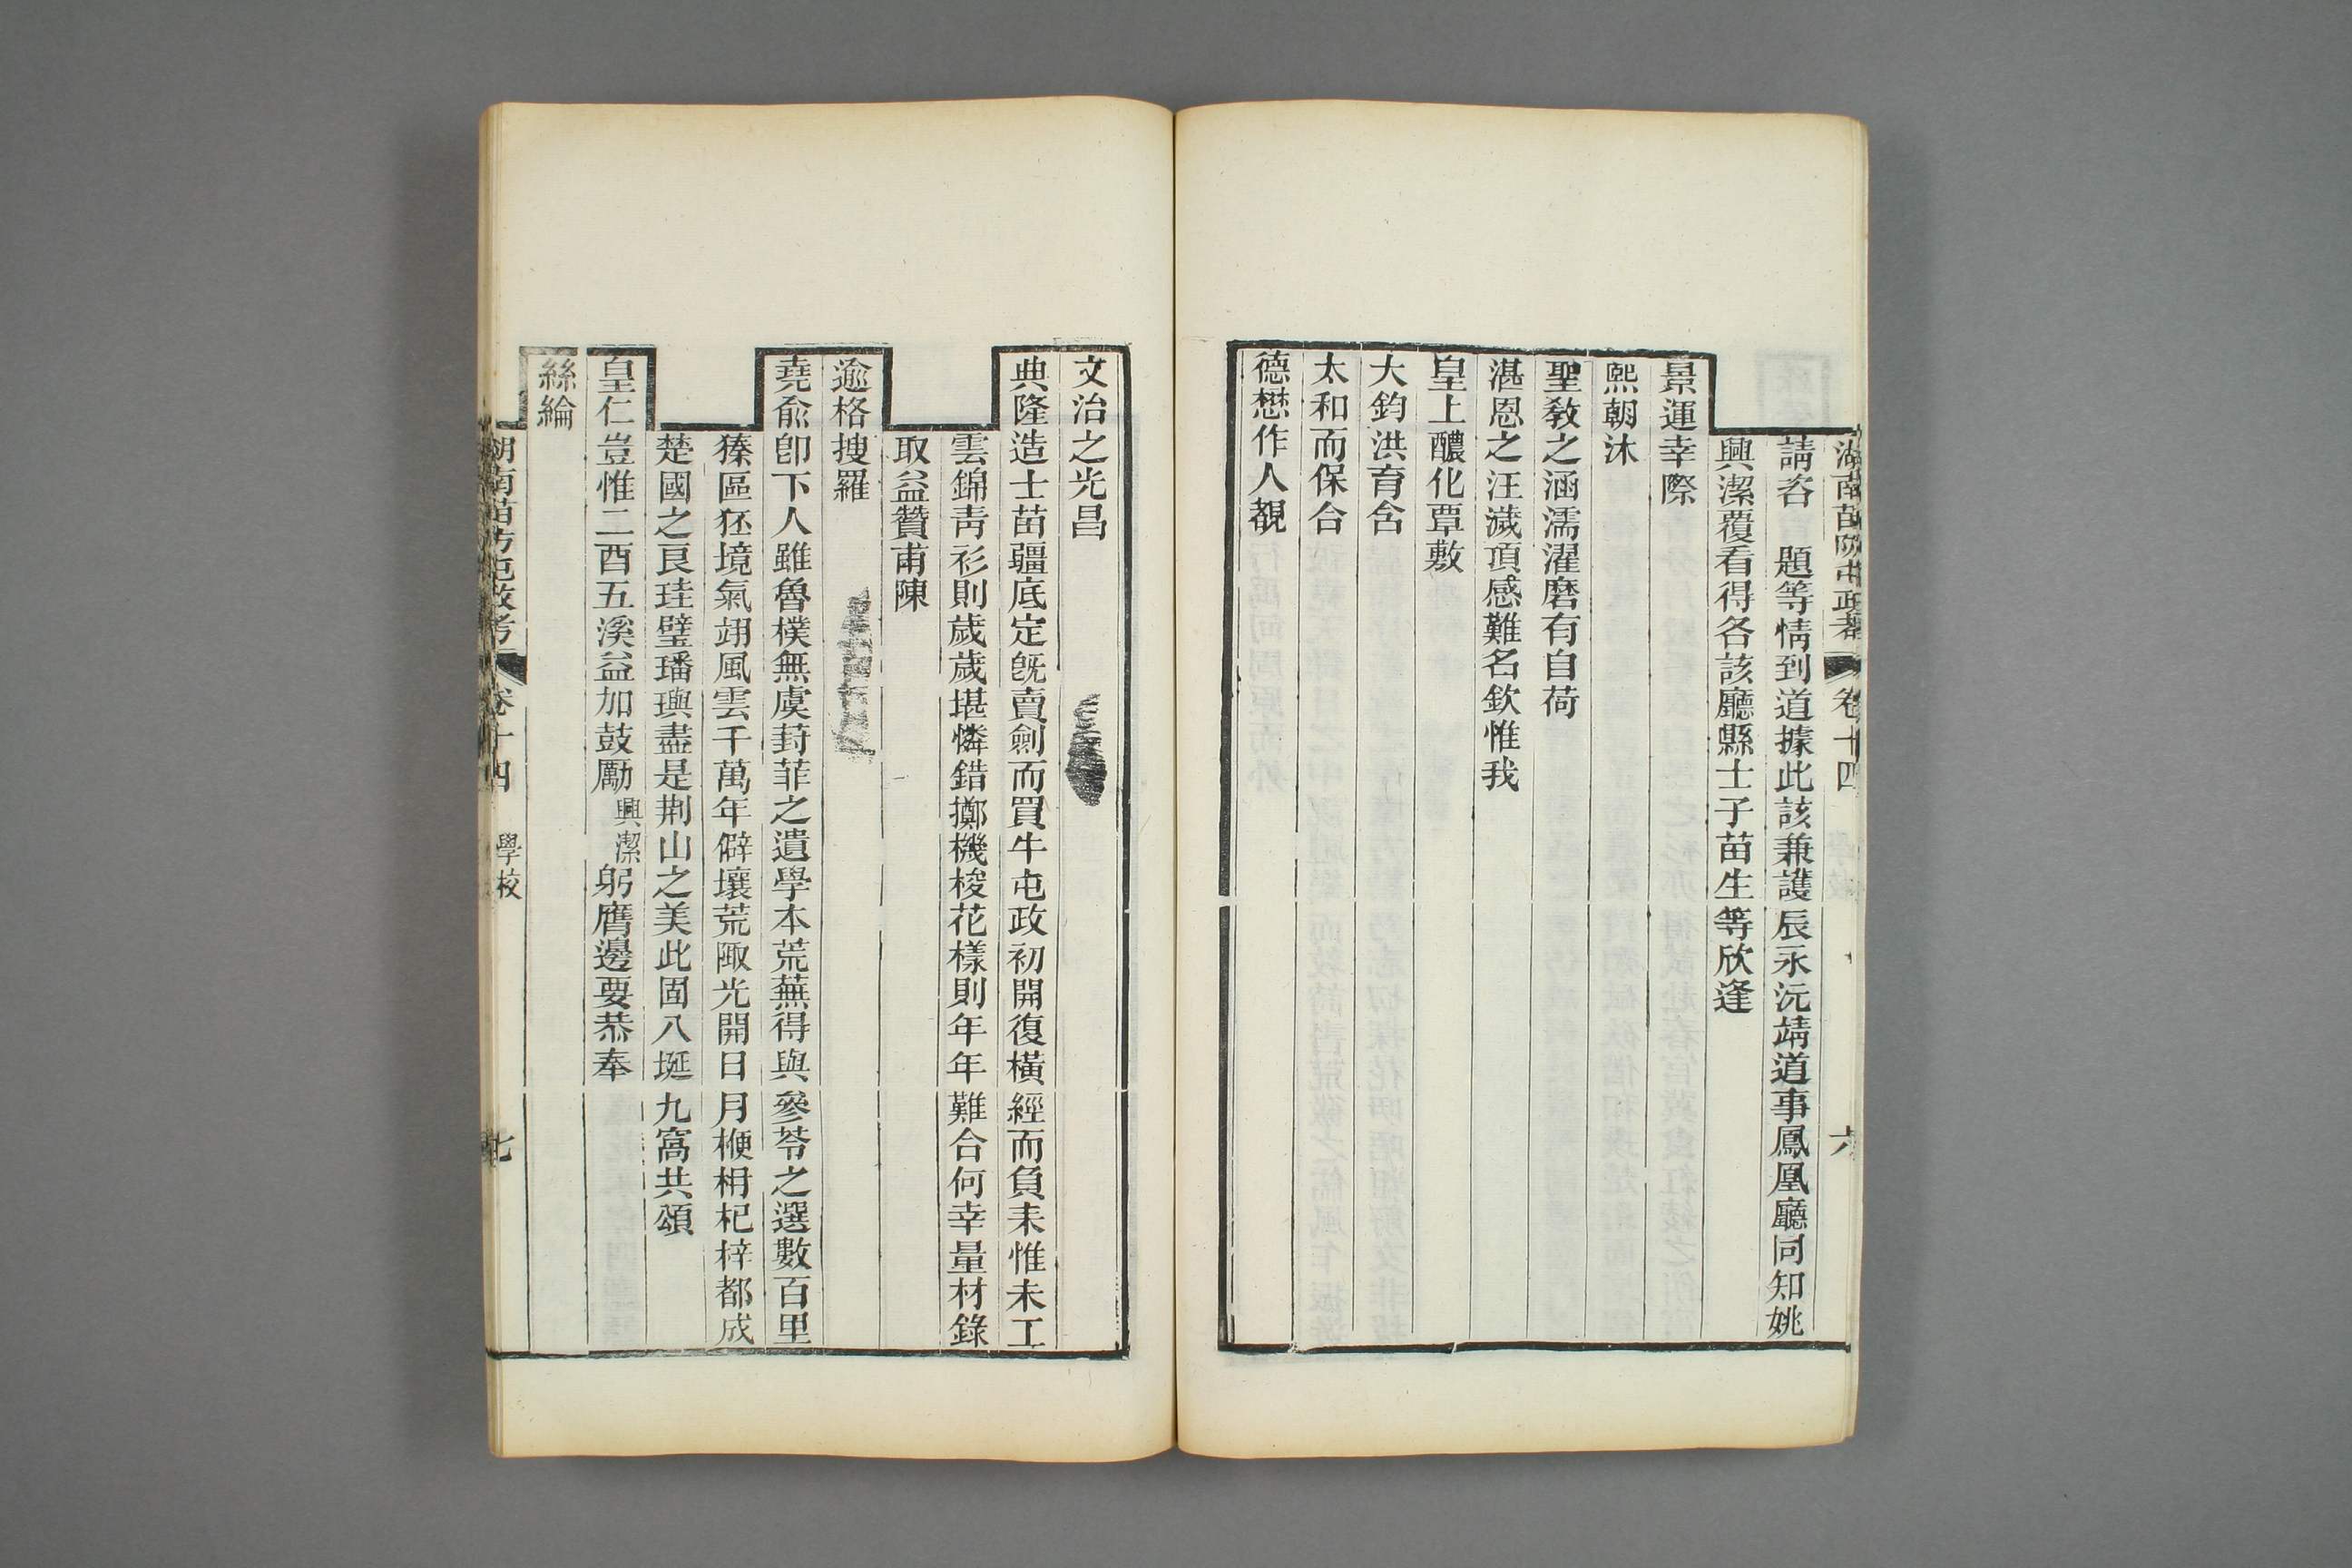 湖南苗防屯政考 卷十四 六
請咨 題等情到道據此該兼護辰永沅靖道事鳳凰廳同知姚
興潔覆看得各該廳縣士子苗生等欣逢
景運幸際
熙朝沐
聖敎之涵濡濯磨有自荷
湛恩之汪濊頂感難名欽惟我
皇上醲化覃敷
大鈞洪育含
太和而保合
德懋作人覩
文治之光昌
典隆造士苗疆底定旣賣劍而買牛屯政初開復橫經而負耒惟未工
雲錦靑衫則歲歲堪憐錯擲機梭花樣則年年難合何幸量材錄
取益贊甫陳
逾格搜羅
堯兪卽下人雖魯樸無虞葑菲之遺學本荒蕪得與參苓之選數百里
獉區狉境氣翊風雲千萬年僻壤荒陬光開日月楩枏杞梓都成
楚國之良珪璧璠璵盡是荆山之美此固八埏九寓共頌
皇仁豈惟二酉五溪益加鼓勵興潔躬膺邊要恭奉
絲綸
湖南苗防屯政考 卷十四 學校 七